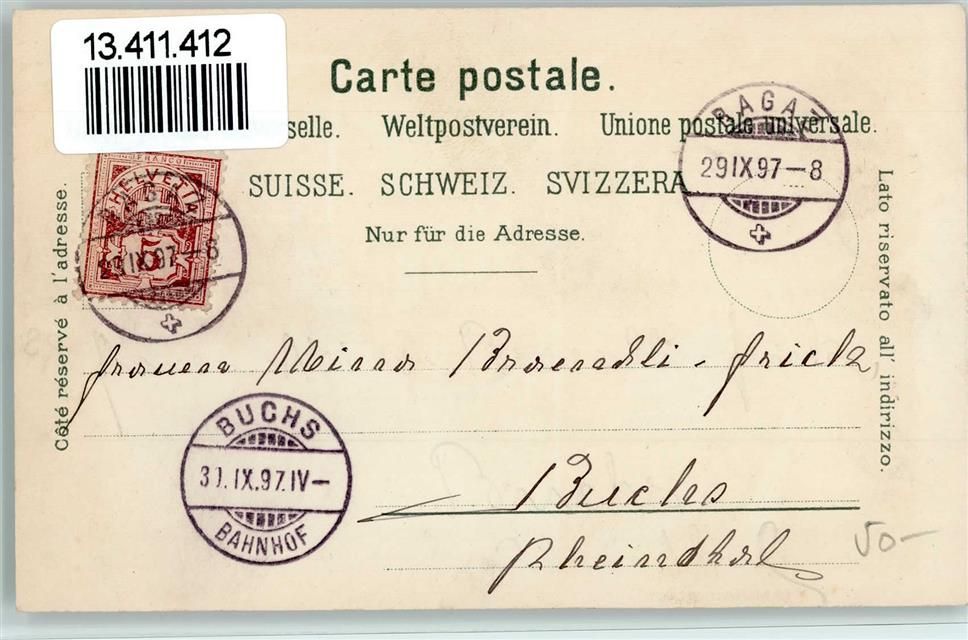 13.411.412
Carte postale.
selle. Weltpostverein. Unione postale universale.
SUISSE. SCHWEIZ. SVIZZERA
Nur für die Adresse.
Côté réservé à l'adresse.
Lato riservato all' indirizzo.
FRANCO
HELVETIA
5
29 IX 97-8
RAGAZ
29 IX 97-8
Frauen Minna
Buchs
Rheinthal
BUCHS
30.IX.97.IV-
BAHNHOF
50-